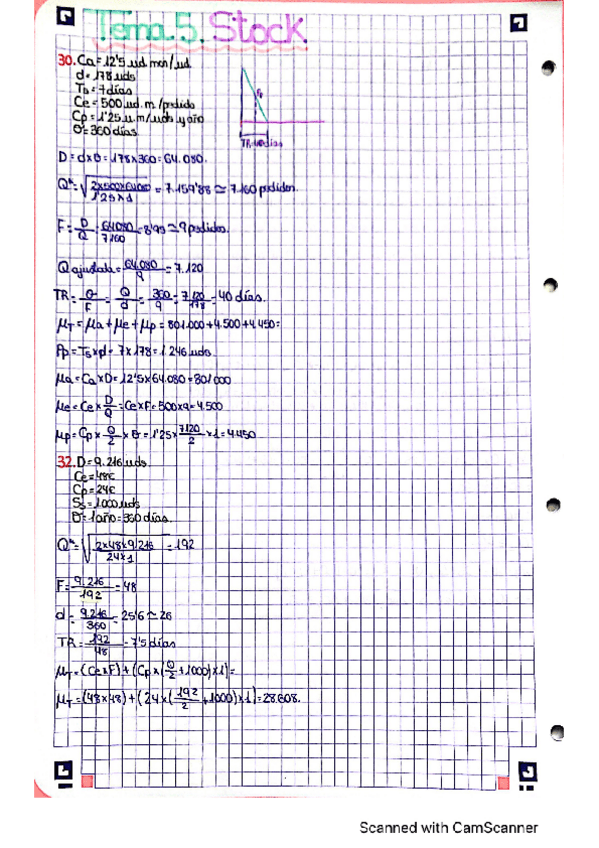 Tema 5. Stock.
30. Ca = 12'5 ud. mon/ud
d = 178 uds
Ts = 7 días
Ce = 500 ud. m /pedido
Cp = 1'25 u.m/uds y año
θ = 360 días
Pp
TR=40 días
D = d x θ = 178 x 360 = 64.080.
Q* = √ 2x500x64080 / 1'25 x 1 = 7.159'88 ≃ 7.160 pedidos.
F = D / Q = 64080 / 7160 = 8'95 ≃ 9 pedidos.
Q ajustada = 64.080 / 9 = 7.120
TR = θ / F = Q / d = 360 / 9 = 7.120 / 178 = 40 días.
μT = μa + μe + μp = 801.000 + 4.500 + 4.450 =
Pp = Ts x d = 7 x 178 = 1.246 uds.
μa = Ca x D = 12'5 x 64.080 = 801.000
μe = Ce x D / Q = Ce x F = 500 x 9 = 4.500
μp = Cp x Q / 2 x θ = 1'25 x 7120 / 2 x 1 = 4.450
32. D = 9.216 uds
Ce = 48€
Cp = 24€
Ss = 1.000 uds
θ = 1 año = 360 días.
Q* = √ 2x48x9.216 / 24 x 1 = 192
F = 9.216 / 192 = 48
d = 9.216 / 360 = 25'6 ≃ 26
TR = 192 / 48 = 7'5 días
μT = (Ce x F) + (Cp x (Q / 2 + 1000) x 1) =
μT = (48 x 48) + (24 x (192 / 2 + 1000) x 1) = 28.608.
Scanned with CamScanner